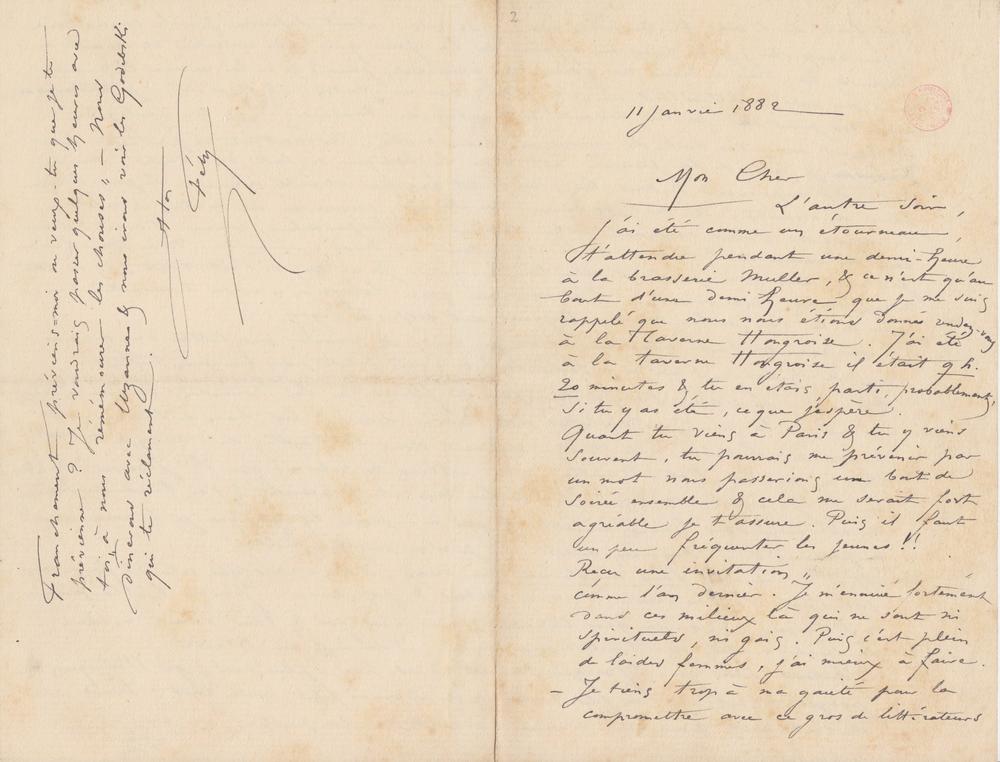 2
11 Janvie 1882
Mon Cher
L'autre soir,
j'ai été comme un étourneau,
t'attendre pendant une demi-heure
à la brasserie Muller, & ce n'est qu'au
bout d'une demi heure que je me suis
rappelé que nous nous étions donnés rendez-vous
à la Taverne Hongroise. J'ai été
à la taverne Hongroise il était 9 h.
20 minutes & tu en étais parti, probablement,
si tu y as été, ce que j'espère.
Quant tu viens à Paris & tu y viens
souvent, tu pourrais me prévenir par
un mot nous passerions un bout de
soirée ensemble & cela me serait fort
agréable je t'assure. Puis il faut
un peu fréquenter les jeunes!!
Reçu une invitation
comme l'an dernier. Je m'ennuie fortement
dans ces milieux là qui ne sont ni
spirituels, ni gais. Puis c'est plein
de laides femmes, j'ai mieux à faire.
– Je tiens trop à ma gaité pour la
compromettre avec ce gros de littérateurs
Franchement préviens-moi ou veux-tu que je te
prévienne? Je voudrais passer quelques heures avec
toi, à nous remémorer les choses, – Nous
dînerons avec Uzanne & nous irons voir les Godebski
qui te réclament.
Ton
Fély